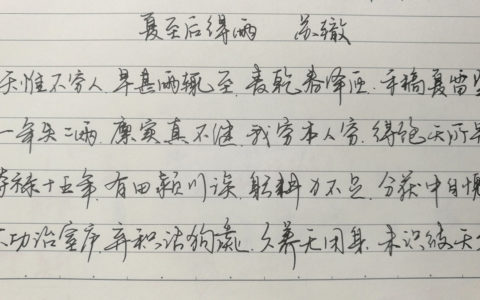 夏至后得雨 苏辙
天惟不穷人.旱甚雨辄至.麦乾春泽匝.禾槁夏雷
一年失二雨.廪实真不继.我穷本人穷.得饱天所
夺禄十五年.有田颍川涘.躬耕力不足.分获中自愧
功治室庐.弃积沾狗彘.久养无用身.未识彼天